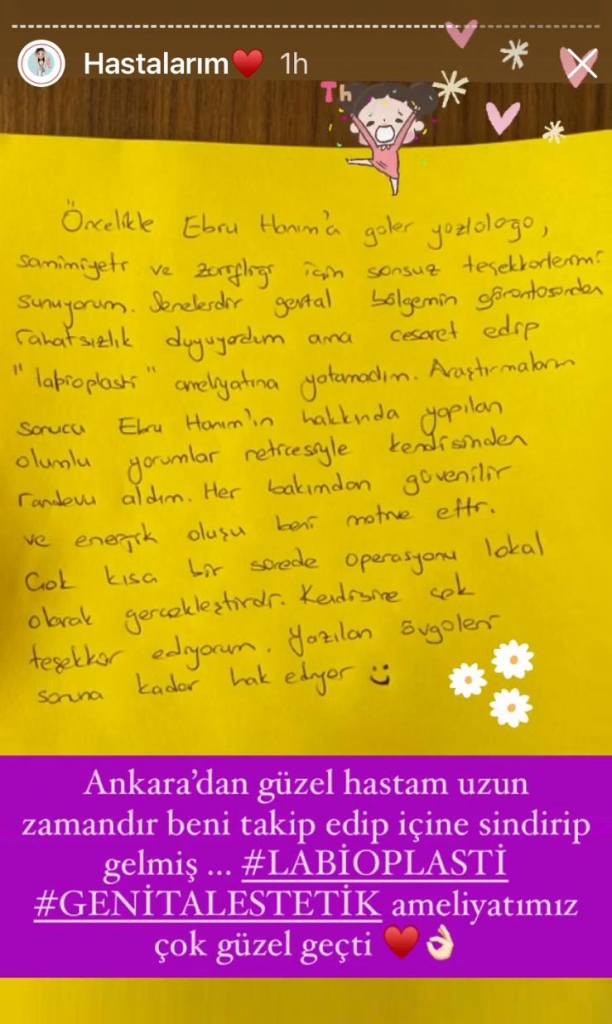 Hastalarım 1h
Th
Öncelikle Ebru Hanım'a güler yüzlülüğü,
samimiyeti ve zarifliği için sonsuz teşekkürlerimi
sunuyorum. Senelerdir genital bölgemin görüntüsünden
rahatsızlık duyuyordum ama cesaret edip
"labioplasti" ameliyatına yatamadım. Araştırmalarım
sonucu Ebru Hanım'ın hakkında yapılan
olumlu yorumlar neticesiyle kendisinden
randevu aldım. Her bakımdan güvenilir
ve enerjik oluşu beni motive etti.
Çok kısa bir sürede operasyonu lokal
olarak gerçekleştirdi. Kendisine çok
teşekkür ediyorum. Yazılan övgüleri
sonuna kadar hak ediyor
Ankara'dan güzel hastam uzun
zamandır beni takip edip içine sindirip
gelmiş ... #LABİOPLASTİ
#GENİTALESTETİK ameliyatımız
çok güzel geçti